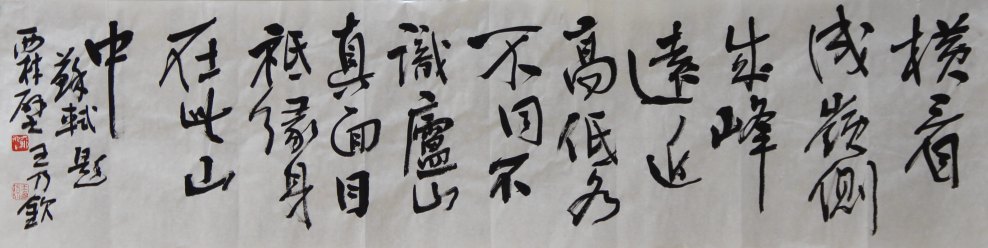 横看
成嶺側
成峰
遠近
高低各
不同不
識廬山
真面目
祗緣身
在此山
中
蘇軾題
西林壁王乃欽